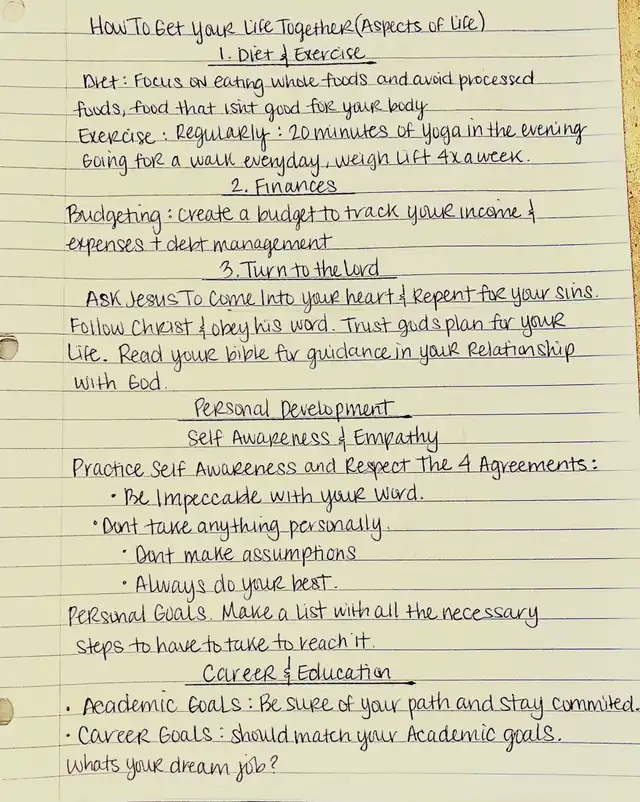 How To Get Your Life Together (Aspects of Life)
1. Diet & Exercise
Diet: Focus on eating whole foods and avoid processed
foods, food that isn't good for your body
Exercise: Regularly: 20 minutes of Yoga in the evening
Going for a walk everyday, weigh lift 4x a week.
2. Finances
Budgeting: create a budget to track your income &
expenses + debt management
3. Turn to the Lord
Ask Jesus To Come Into your heart & Repent for your sins.
Follow Christ & obey his word. Trust gods plan for your
life. Read your bible for guidance in your Relationship
with God.
Personal Development
Self Awareness & Empathy
Practice Self Awareness and Respect The 4 Agreements:
• Be Impeccable with your word.
• Dont take anything personally.
• Dont make assumptions
• Always do your best.
Personal Goals. Make a list with all the necessary
steps to have to take to reach it.
Career & Education
• Academic Goals: Be sure of your path and stay commited.
• Career Goals: should match your Academic goals.
Whats your dream job?